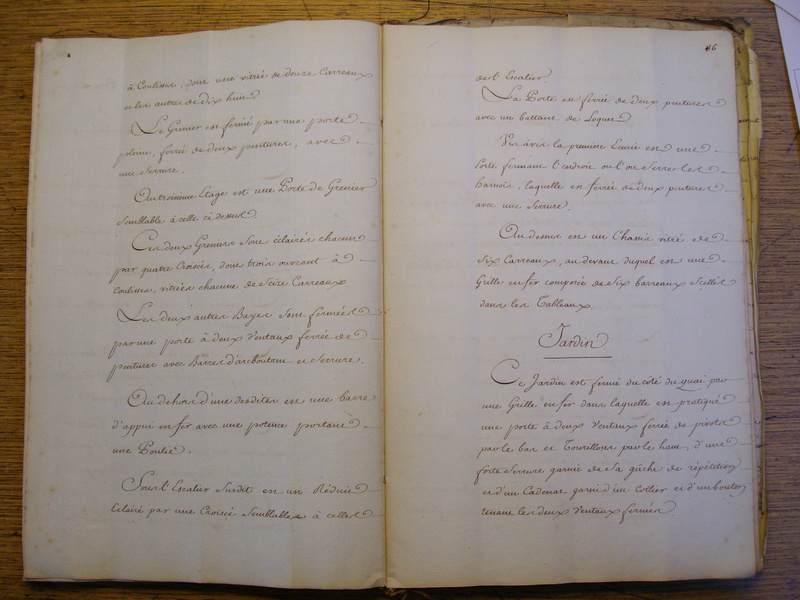 à Coulisse, dont une vitrée de douze Carreaux
et les autre de dix huit
Le Grenier est fermé par une porte
pleine, ferrée de deux pentures, avec
une Serrure.
Au troisieme Etage est une Porte de Grenier
Semblable à celle ci dessus.
Ces deux Greniers sont éclairés chacun
par quatre Croisées, dont trois ouvrant à
Coulisse, vitrées chacune de Seize Carreaux
Les deux autres Bayes sont fermées
par une porte à deux Ventaux ferrée de
pentures avec Barres d'arcboutant et Serrure.
Au dehors d'une desdites est une barre
d'appui en fer avec une potence portant
une Poulie.
Sous l'Escalier Susdit est un Réduit
Eclairé par une Croisée Semblable à celles
86
de l'Escalier
La Porte est ferrée de deux pentures
avec un battant de Loquet
Vis avis la premiere Ecurie est une
Porte fermant l'endroit ou l'on Serre les
harnois, laquelle est ferrée de deux pentures
avec une Serrure.
Au dessus est un Chassis vitré de
Six Carreaux, au devant duquel est une
Grille en fer composée de Six barreaux Scellés
dans les Tableaux.
Jardin
Ce Jardin est fermé du côté du quai par
une Grille en fer dans laquelle est pratiqué
une porte à deux Ventaux ferrée de pivots
par le bas et Tourillons par le haut, d'une
forte Serrure garnie de Sa gâche de répétition
et d'un Cadenat garni d'un Collier et d'un bouton
tenant les deux Ventaux fermés